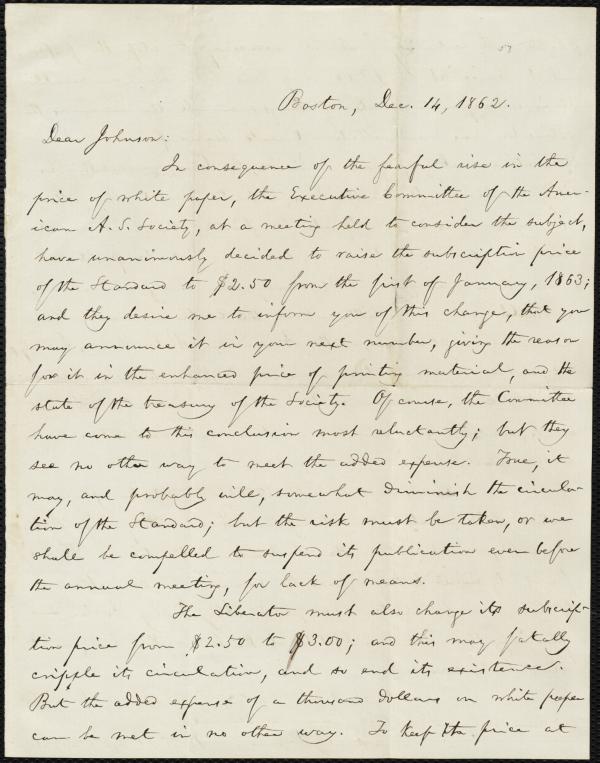 57
Boston, Dec. 14, 1862.
Dear Johnson:
In consequence of the fearful rise in the
price of white paper, the Executive Committee of the Amer-
ican A. S. Society, at a meeting held to consider the subject,
have unanimously decided to raise the subscription price
of the Standard to $2.50 from the first of January, 1863;
and they desire me to inform you of this change, that you
may announce it in your next number, giving the reason
for it in the enhanced price of printing material, and the
state of the treasury of the Society. Of course, the Committee
have come to this conclusion most reluctantly; but they
see no other way to meet the added expense. True, it
may, and probably will, somewhat diminish the circula-
tion of the Standard; but the risk must be taken, or we
shall be compelled to suspend its publication even before
the annual meeting, for lack of means.
The Liberator must also change its subscrip-
tion price from $2.50 to $3.00; and this may fatally
cripple its circulation, and so end its existence.
But the added expense of a thousand dollars on white paper
can be met in no other way. To keep the price at